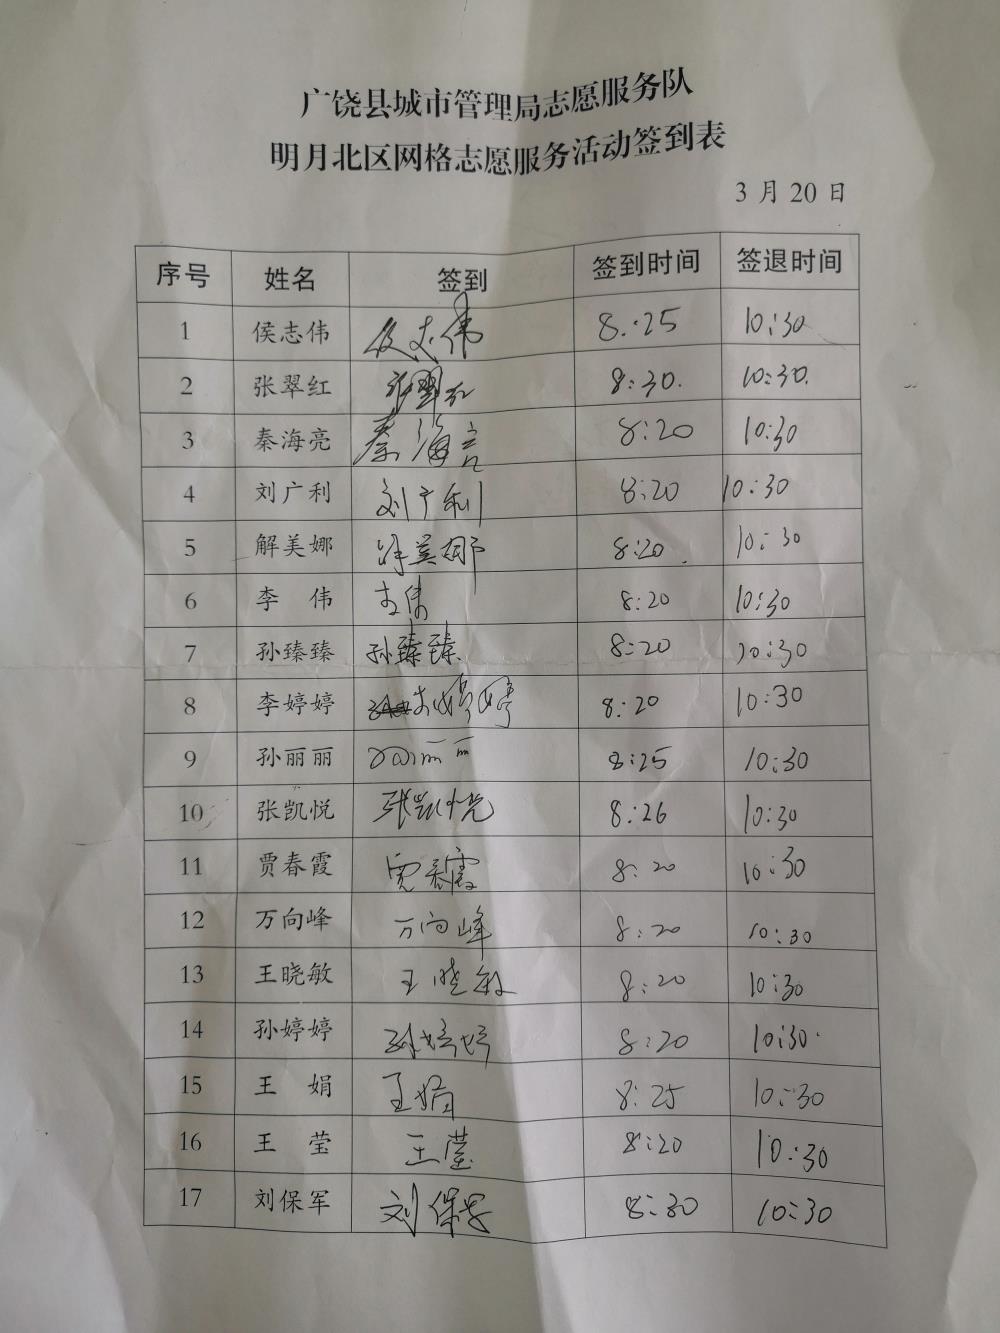 广饶县城市管理局志愿服务队
明月北区网格志愿服务活动签到表
3月20日
序号 姓名 签到 签到时间 签退时间
1 侯志伟 侯志伟 8:25 10:30
2 张翠红 张翠红 8:30. 10:30.
3 秦海亮 秦海亮 8:20 10:30
4 刘广利 刘广利 8:20 10:30
5 解美娜 解美娜 8:20 10:30
6 李 伟 李伟 8:20 10:30
7 孙臻臻 孙臻臻 8:20 10:30
8 李婷婷 李婷婷 8:20 10:30
9 孙丽丽 孙丽丽 8:25 10:30
10 张凯悦 张凯悦 8:26 10:30
11 贾春霞 贾春霞 8:20 10:30
12 万向峰 万向峰 8:20 10:30
13 王晓敏 王晓敏 8:20 10:30
14 孙婷婷 孙婷婷 8:20 10:30
15 王 娟 王娟 8:25 10:30
16 王 莹 王莹 8:20 10:30
17 刘保军 刘保军 8:30 10:30